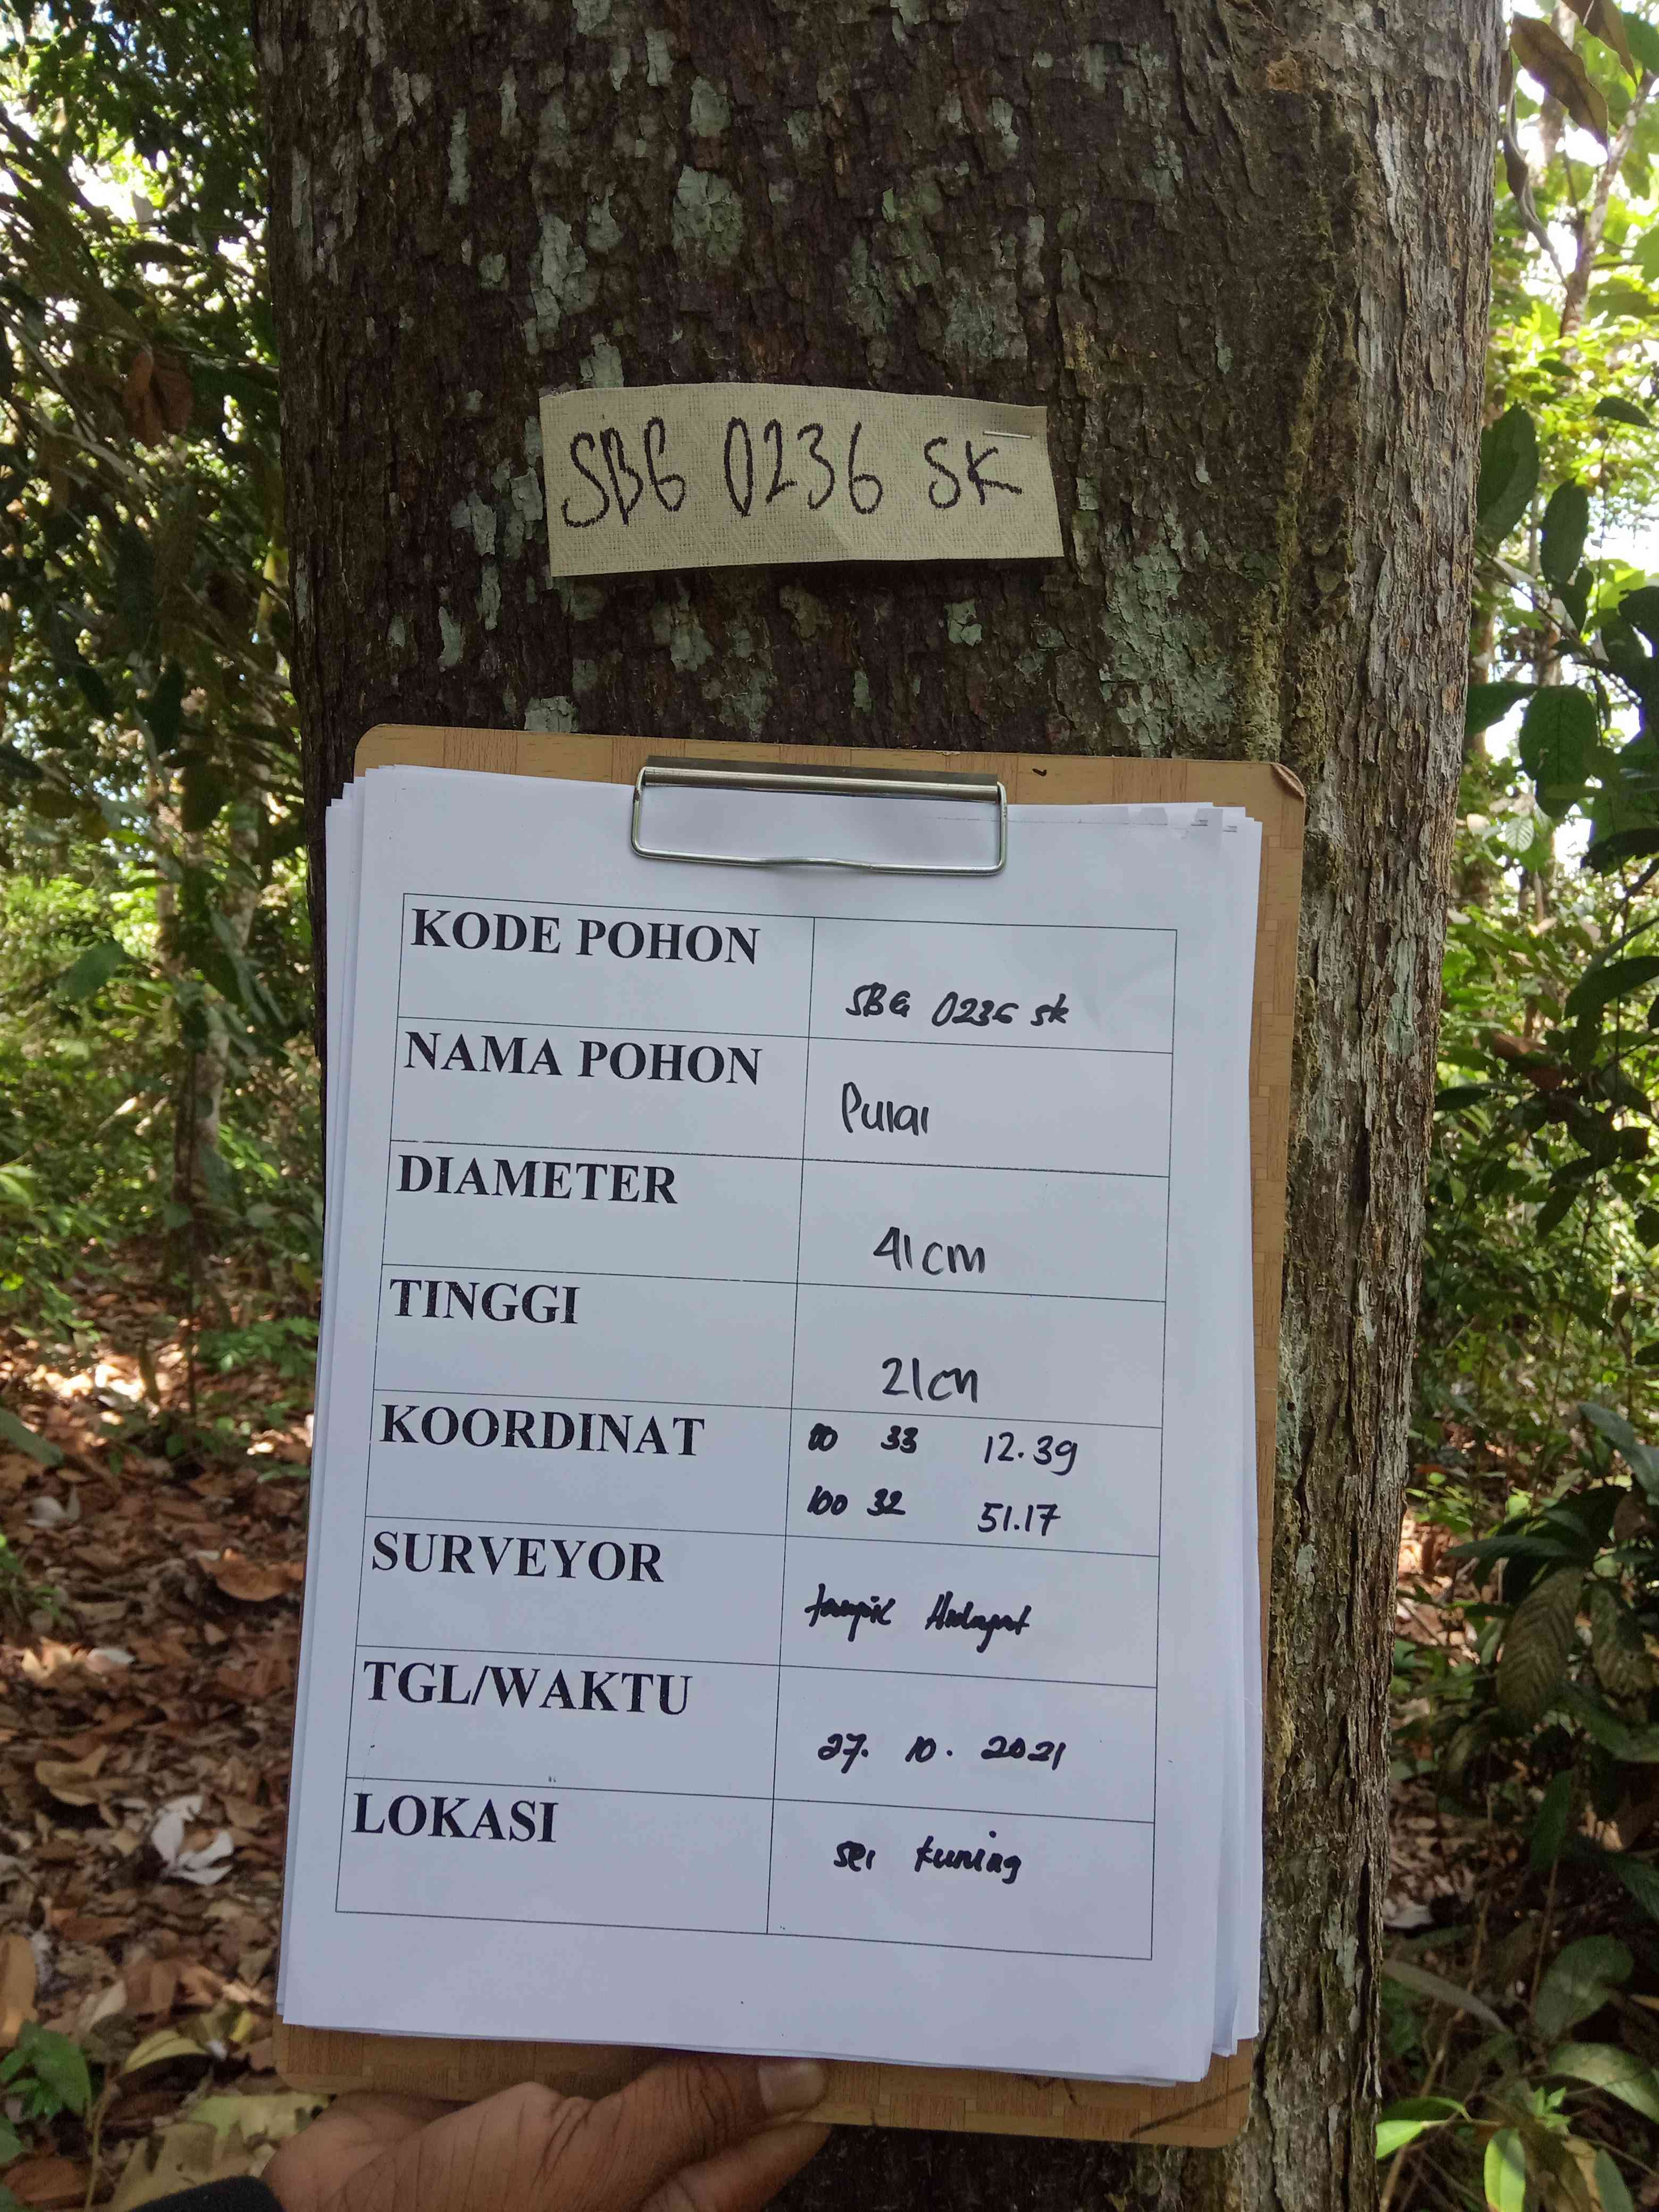 SBG 0236 SK
KODE POHON
SBG 0236 SK
NAMA POHON
Pulai
DIAMETER
41 cm
TINGGI
21 cm
KOORDINAT
00 33 12.39
100 32 51.17
SURVEYOR
taupik Hidayat
TGL/WAKTU
27. 10. 2021
LOKASI
sei kuning